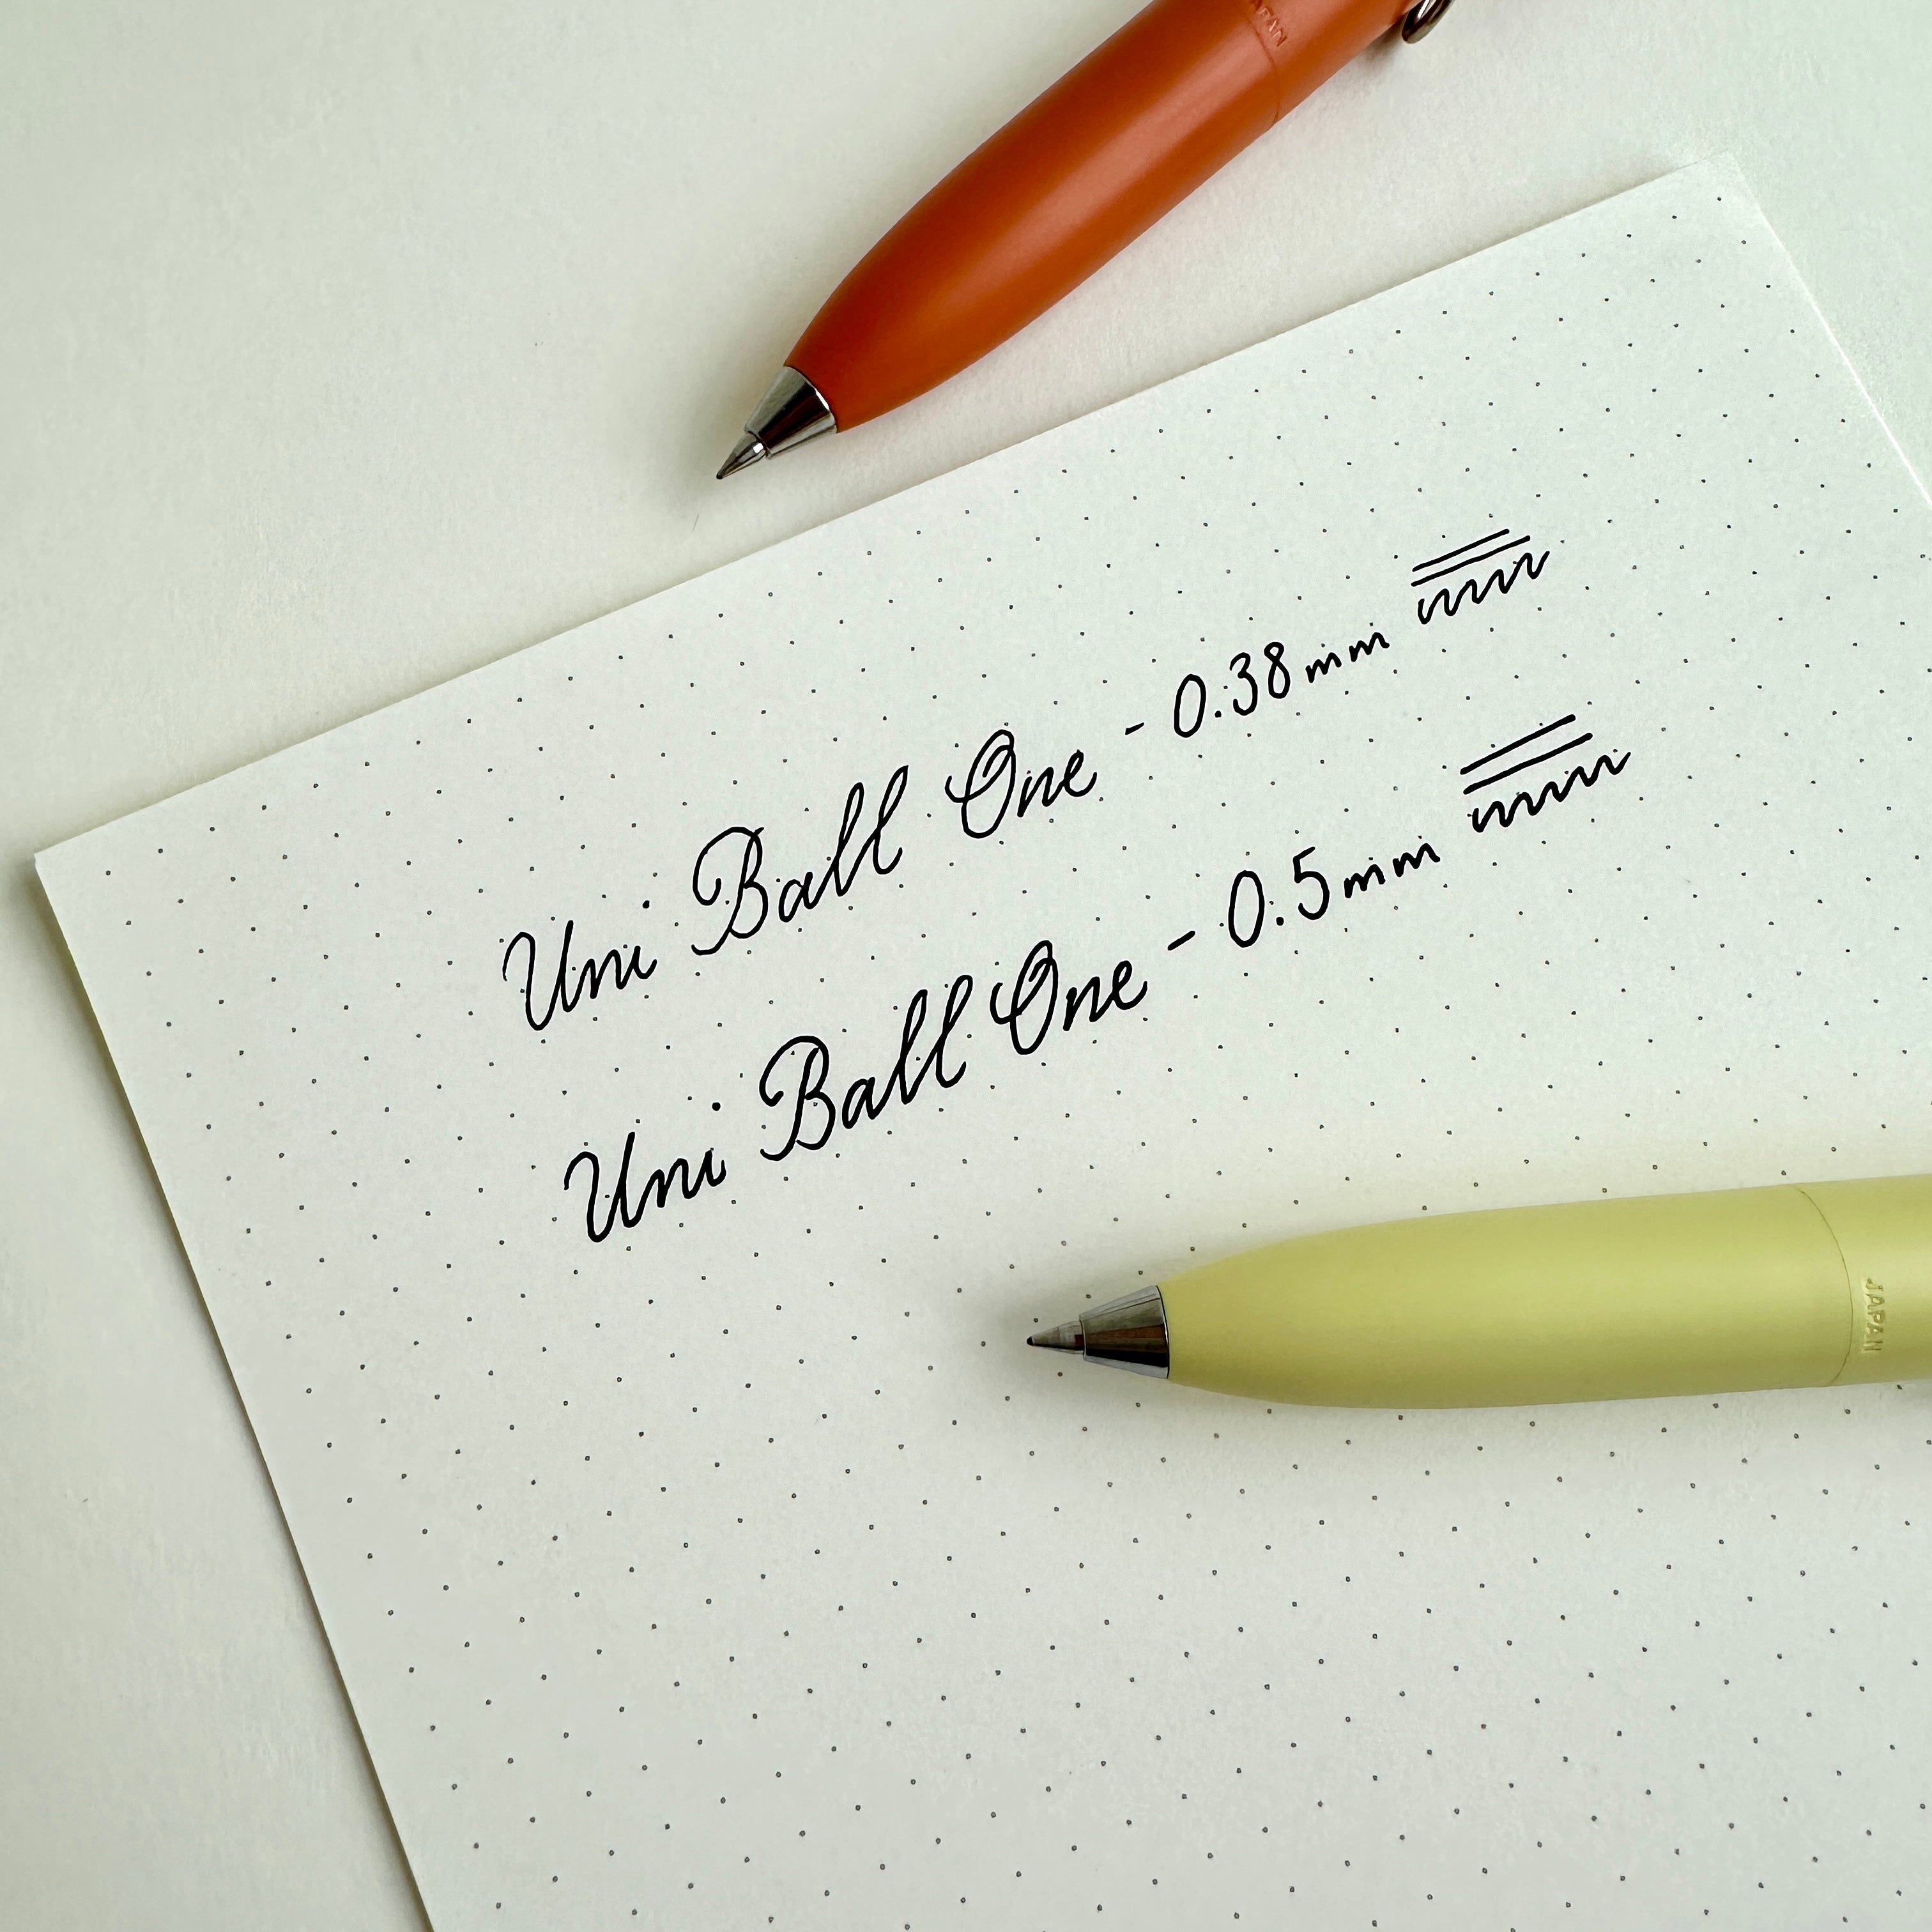 JAPAN
Uni Ball One - 0.38mm
Uni Ball One - 0.5mm
JAPAN